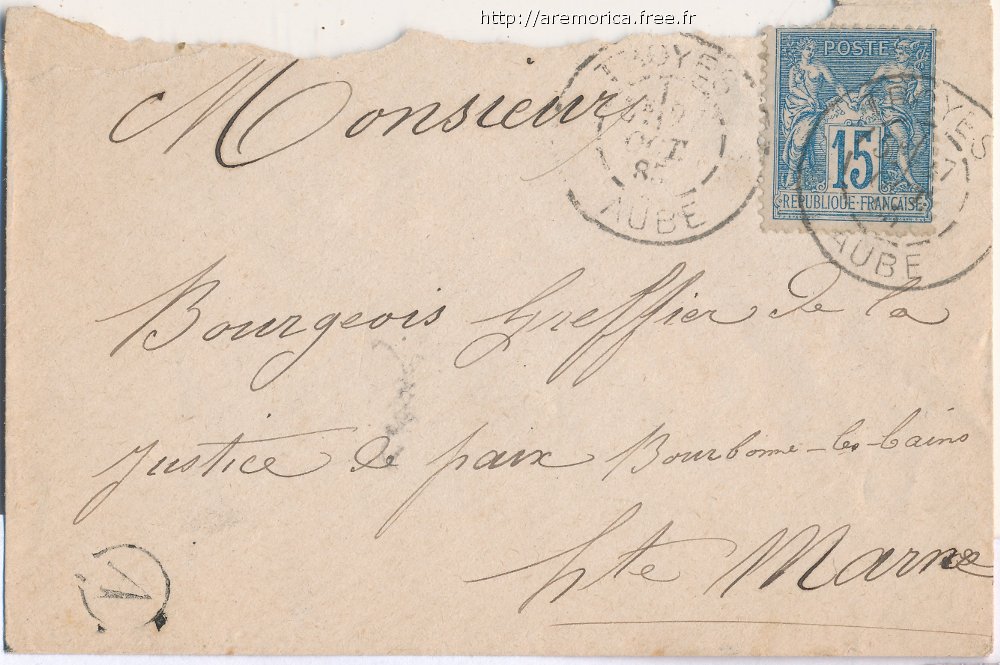 http://aremorica.free.fr
TROYES
OCT
AUBE
POSTE
15
REPUBLIQUE FRANÇAISE
TROYES
AUBE
Monsieur
Bourgeois Greffier de la
Justice de paix Bourbonne-les-bains
Hte Marne